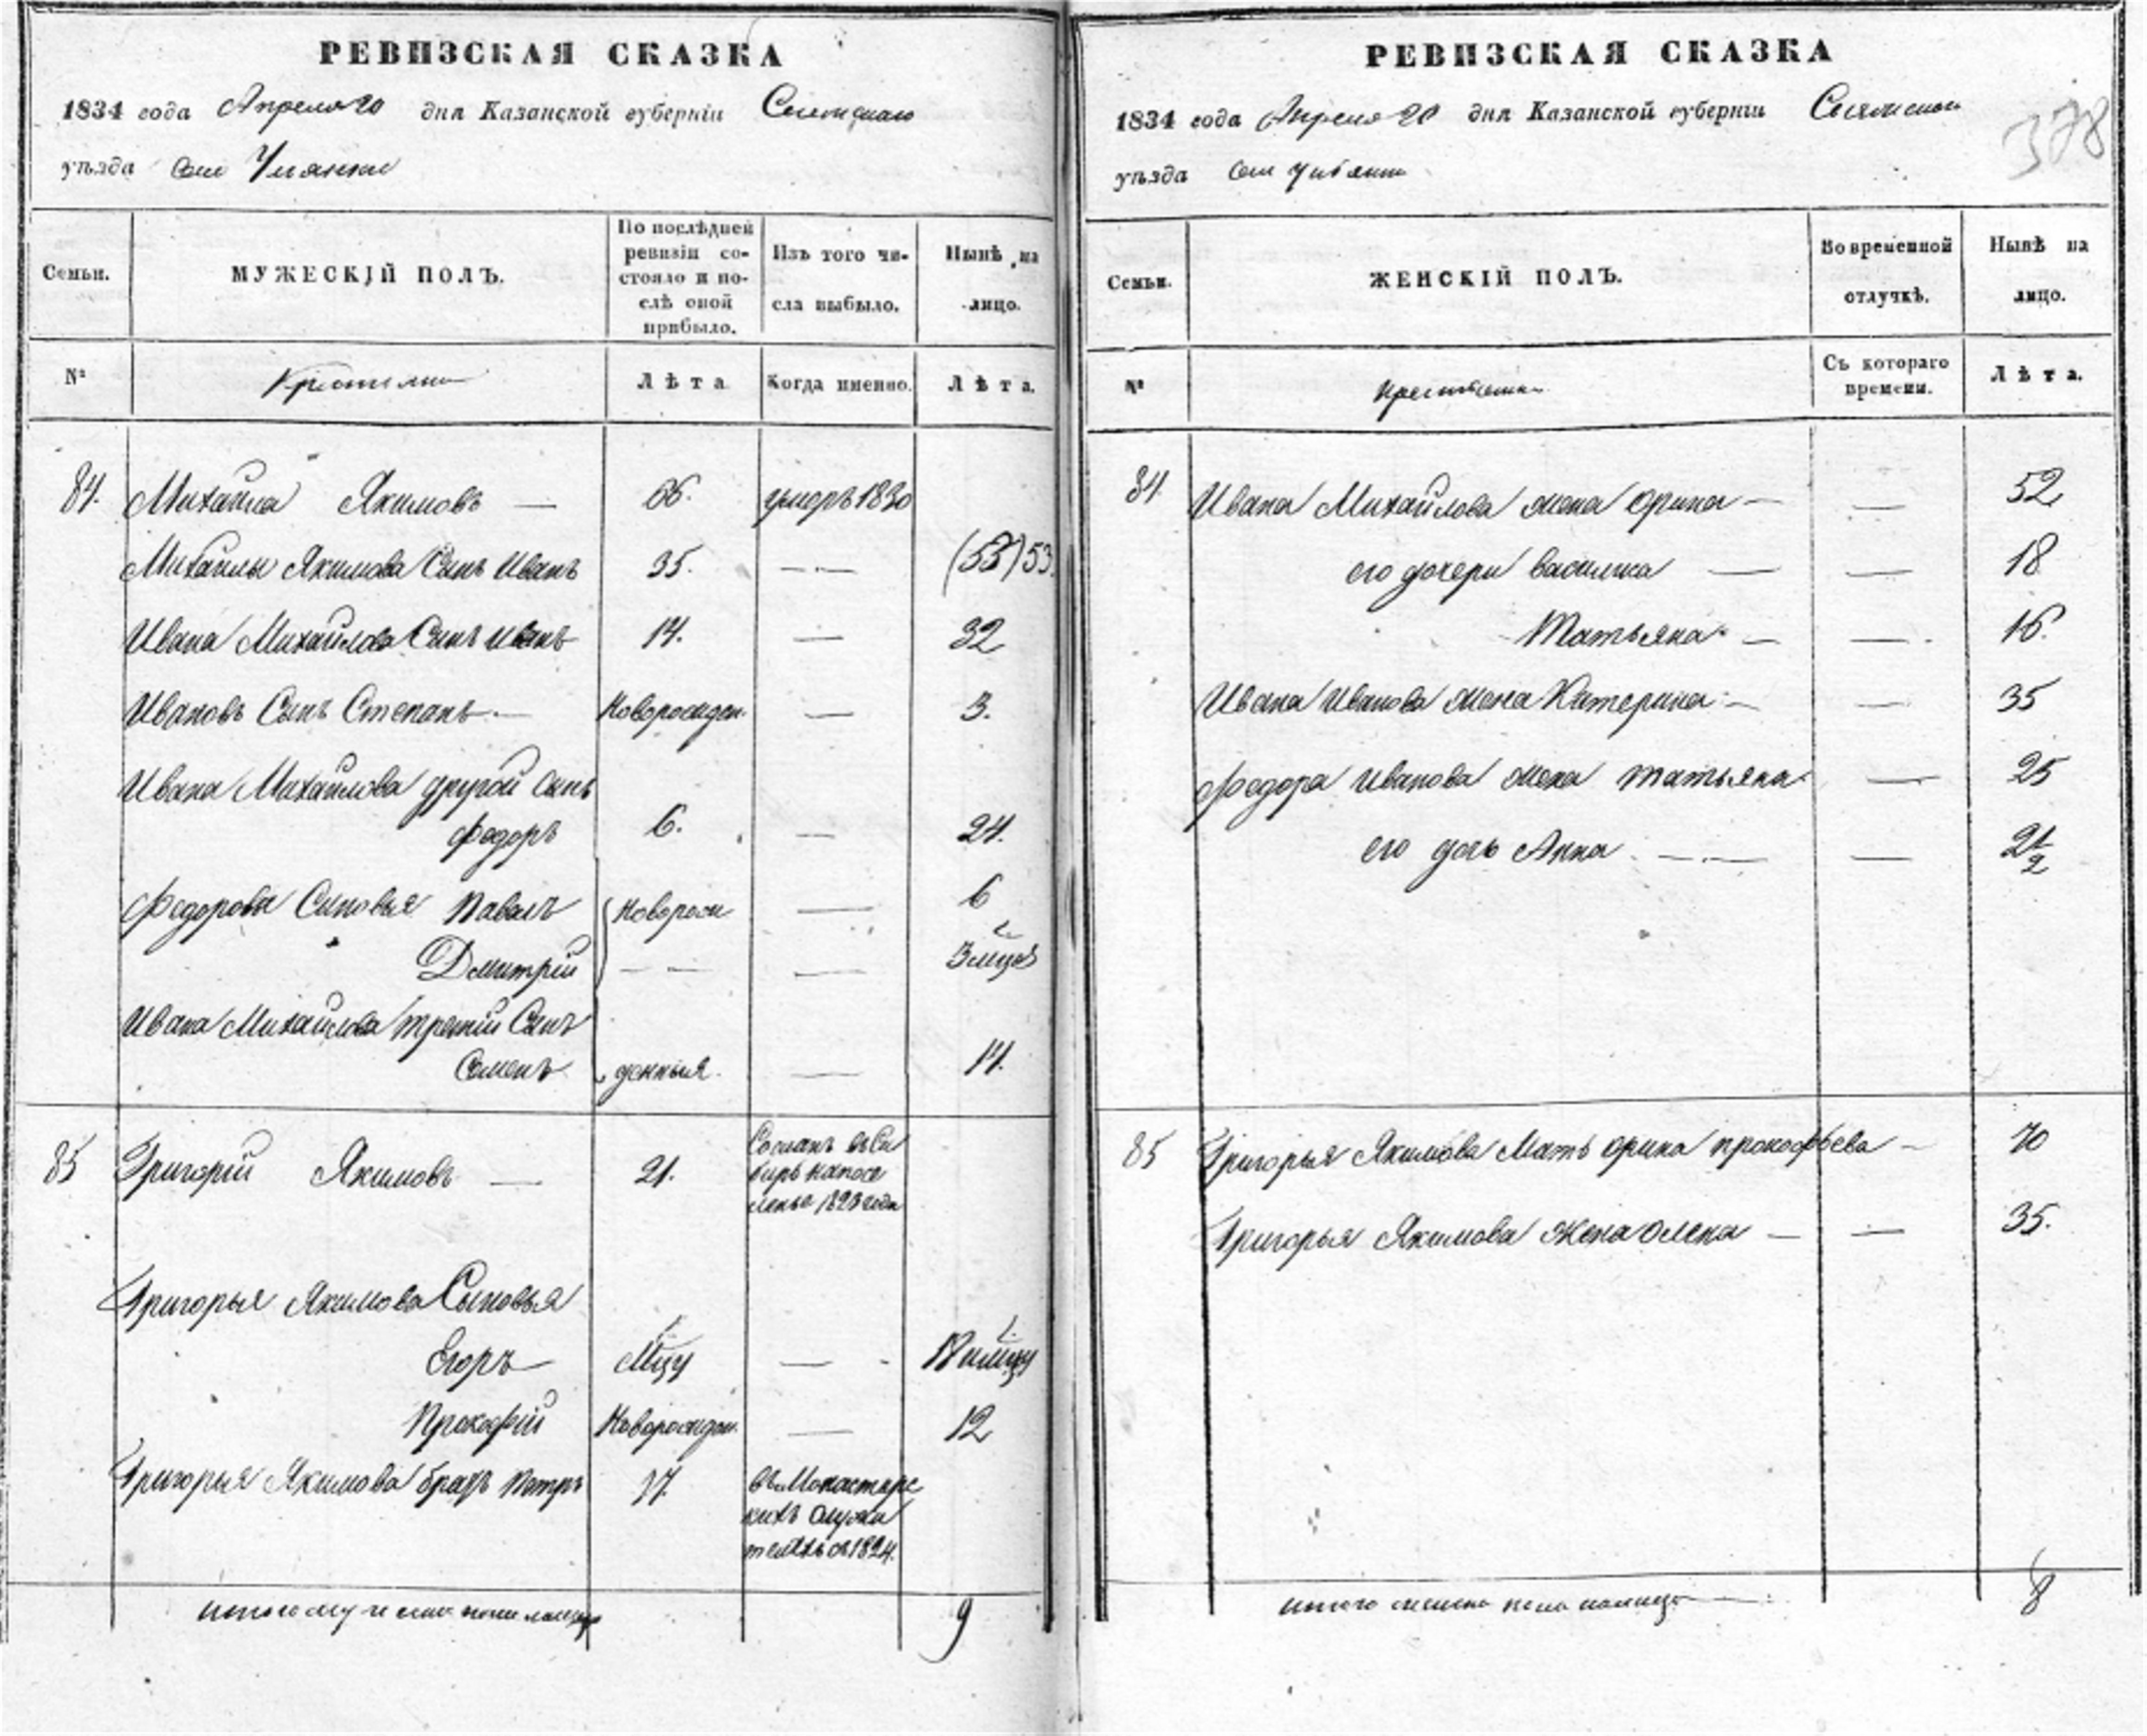 РЕВИЗСКАЯ СКАЗКА
1834 года Апреля 20 дня Казанской губерніи
уѣзда
Семьи.
МУЖЕСКІЙ ПОЛЪ.
По послѣдней ревизіи состояло и послѣ оной прибыло.
Изъ того числа выбыло.
Нынѣ на лицо.
№
Лѣта
Когда именно.
Лѣта.
84. Михайла Якимовъ — 66. умеръ 1830
Михайлы Якимова Сынъ Иванъ 35. — (53) 53
Ивана Михайлова Сынъ Иванъ 14. — 32
Ивановъ Сынъ Степанъ — Новорожден. — 3.
Ивана Михайлова другой сынъ
Федоръ 6. — 24.
Федоровы Сыновья Павелъ Коворож — 6
Дмитрій — — 3 мцов
Ивана Михайлова третій Сынъ
Семенъ денныя. — 14.
85 Григорій Якимовъ — 21. Сосланъ въ Си
биръ напосе
ленье 1823 года
Григорья Якимова Сыновья
Егоръ Мцу —
Прокофій Новорожден. — 12
Григорья Якимова братъ Петръ 17. въ Монастырс
кихъ служи
теляхъ съ 1824.
9
РЕВИЗСКАЯ СКАЗКА
378
1834 года Апреля 20 дня Казанской губерніи
уѣзда
Семьи.
ЖЕНСКІЙ ПОЛЪ.
Во временной отлучкѣ.
Нынѣ на лицо.
№
Съ котораго времени.
Лѣта.
84. Ивана Михайлова жена орина — — 52
его дочери василиса — — 18
Татьяна — — 16.
Ивана Иванова жена Катерина — — 35
Федора иванова жена татьяна — 25
его дочь Анна — — 2 1/2
85 Григорья Якимова Мать орина прокофьева — 70
Григорья Якимова жена олена — — 35.
8